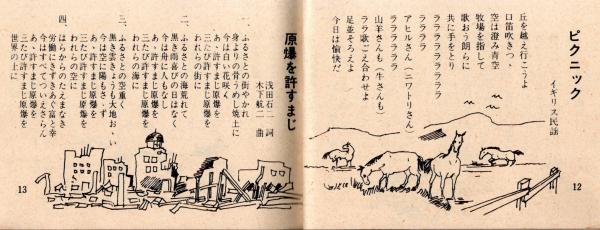 ピクニック
イギリス民謡
丘を越え行こうよ
口笛吹きつゝ
空は澄み青空
牧場を指して
歌おう朗らに
共に手をとり
ラララララララ
ララララ
ラララララララ
アヒルさん(ニワトリさん)
山羊さんも(牛さんも)
ララ歌ごえ合わせよ
足並そろえよ
今日は愉快だ
12
原爆を許すまじ
浅田石二 詞
木下航二 曲
一、ふるさとの街やかれ
身よりの骨うめし焼土に
今は白い花咲く
あゝ許すまじ原爆を
三たび許すまじ原爆を
われらの街に
二、ふるさとの海荒れて
黒き雨喜びの日はなく
今は舟に人もなし
あゝ許すまじ原爆を
三たび許すまじ原爆を
われらの海に
三、ふるさとの空重く
黒き雲今日も大地おゝい
今は空に陽もさゝず
あゝ許すまじ原爆を
三たび許すまじ原爆を
われらの空に
四、はらからのたえまなき
労働にきずきあぐ富と幸
今はすべてついえさらん
あゝ許すまじ原爆を
三たび許すまじ原爆を
世界の上に
13